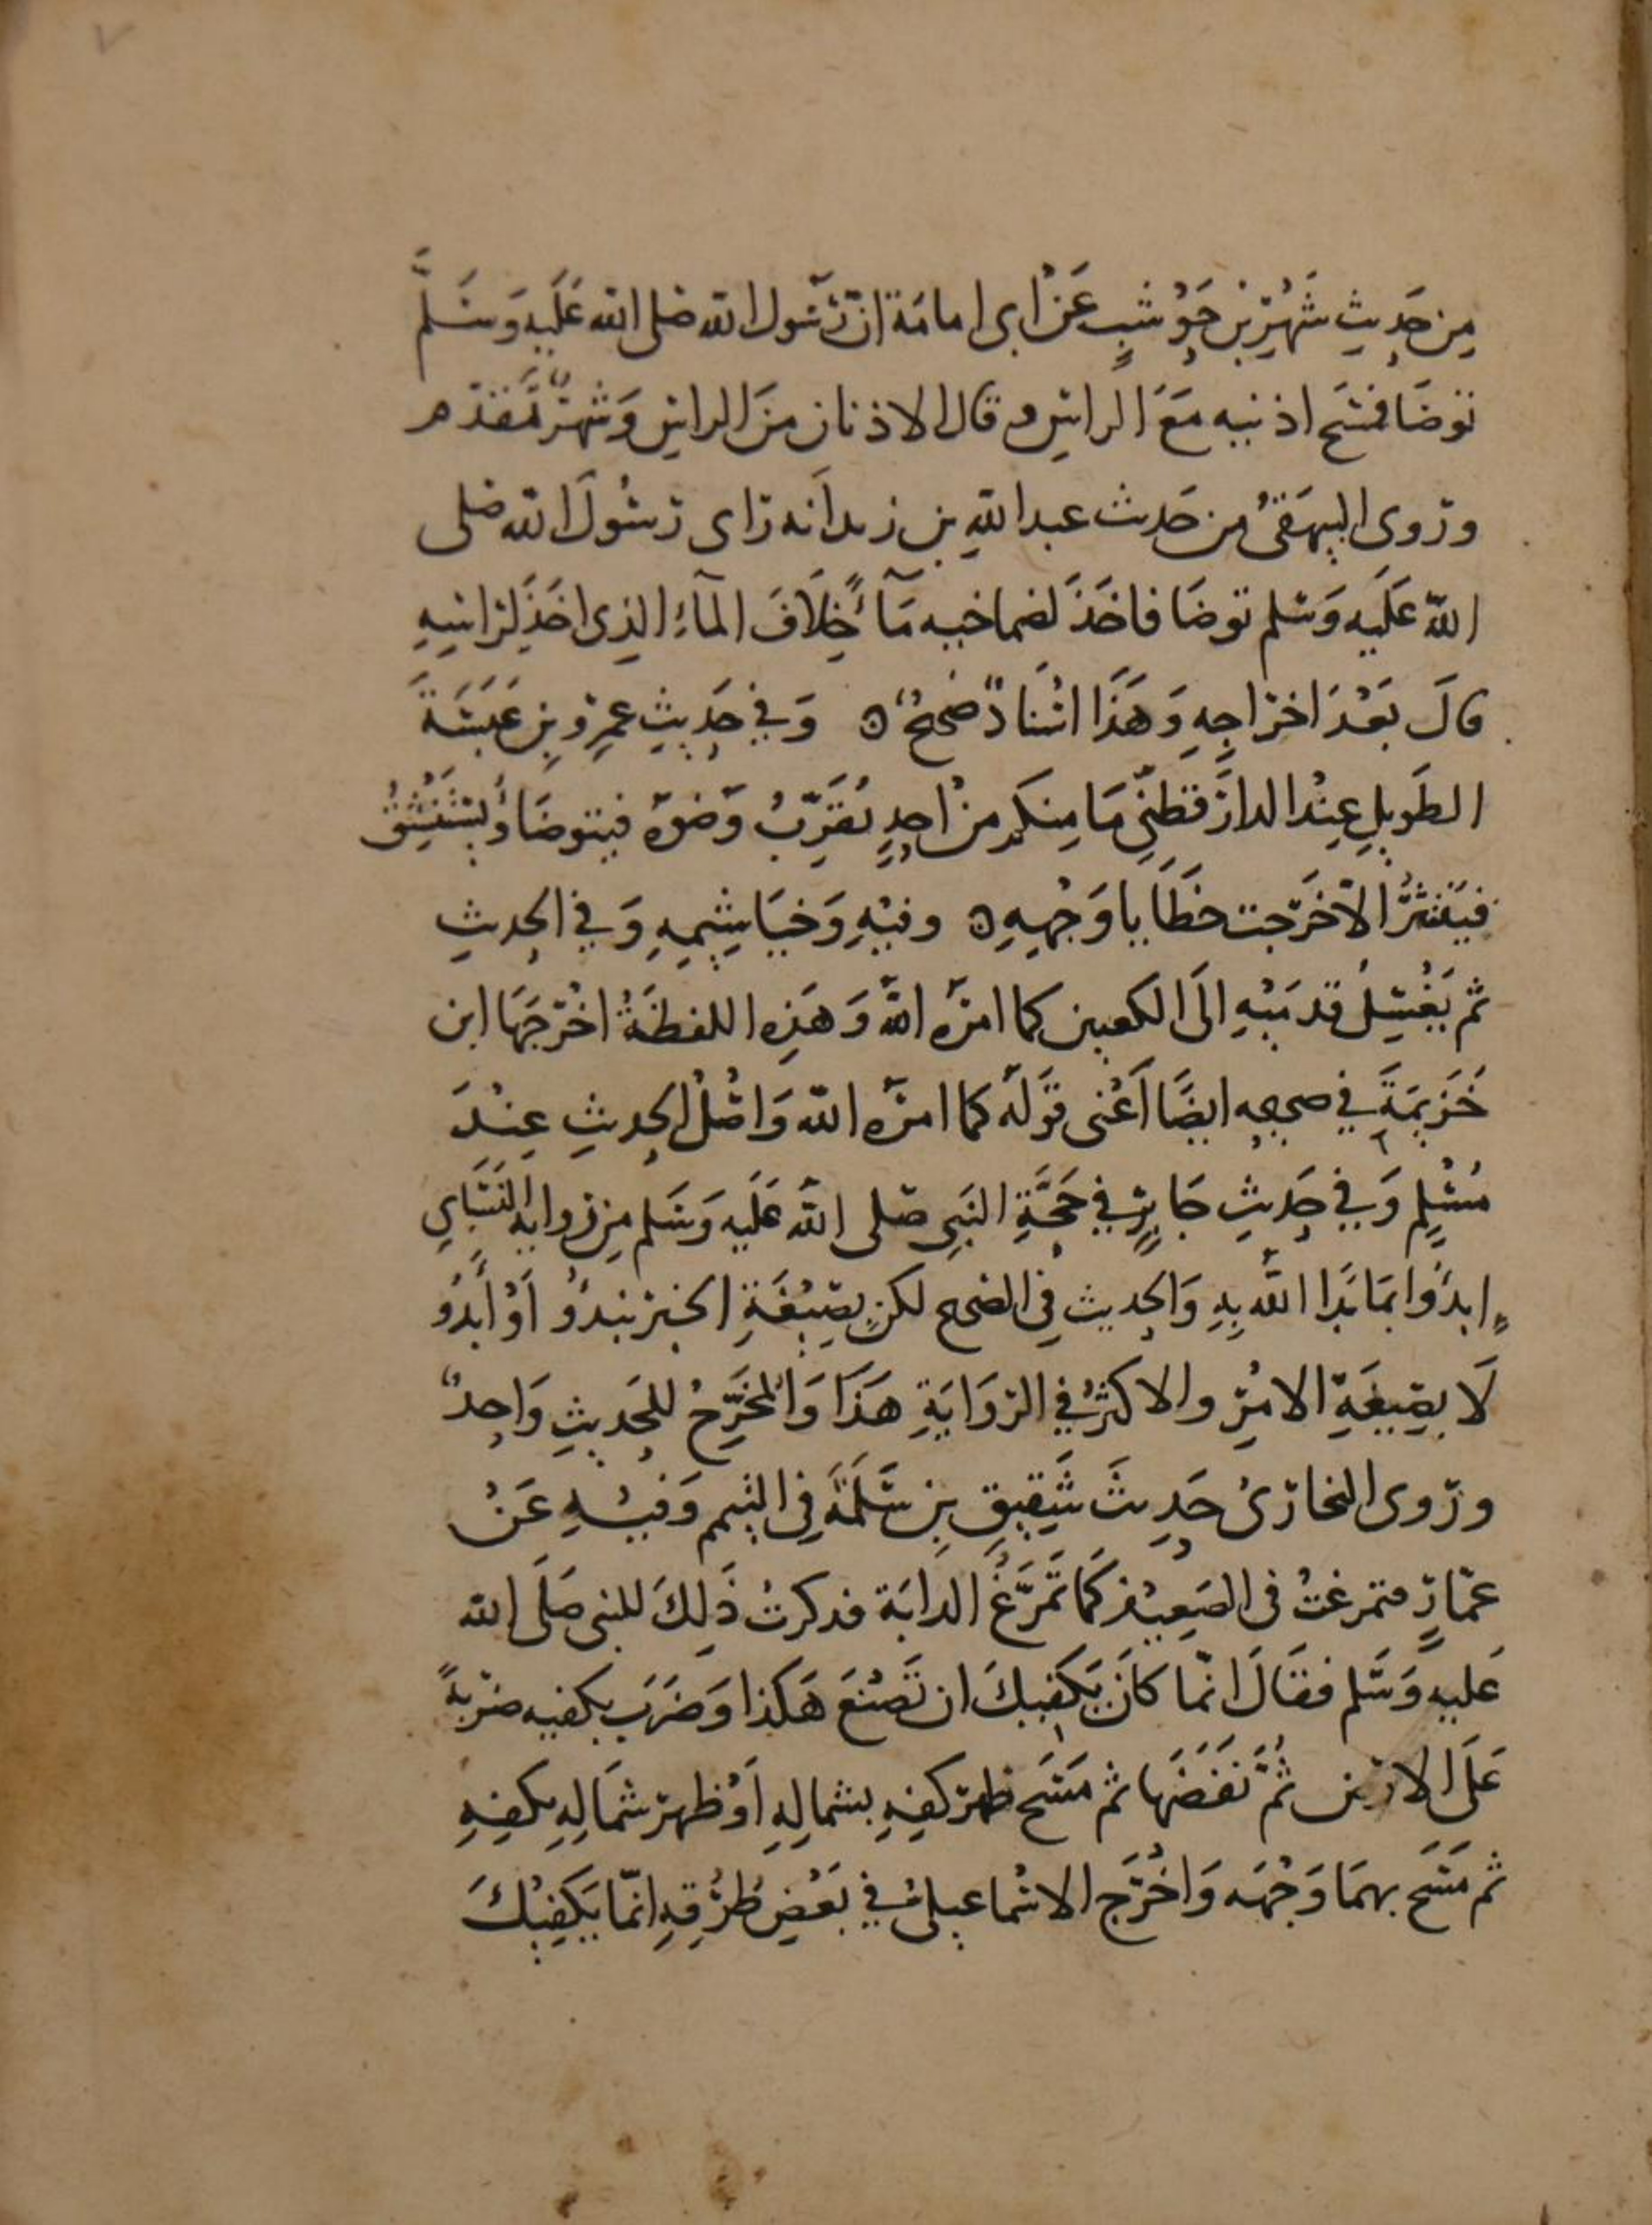 ٧
مِن حَدِيثِ شَهْرِ بْنِ حَوْشَبٍ عَنْ ابى امامَة انّ رَسُول الله صَلى الله عَلَيهِ وَسَلَّمَ
توضَا فمسَح اذنيه مَعَ الراس وقال الاذنان منَ الراسِ وَشهرٌ تَقدّم
ورَوى البيهَقىُ من حَدِيث عبد اللهِ بن زيد اَنه رَاى رَسُولَ الله صَلى
اللهُ عَلَيه وَسَلم توضَا فاخَذَ لصماخيه مَآءً خِلَافَ المآءِ الذِى اخَذَ لِرَاسِهِ
قالَ بَعْدَ اخرَاجِهِ وَهَذَا اسْنادٌ صَحيحٌ ٥ وَفي حَدِيثِ عمرِو بنِ عَبَسَةَ
الطَوِيلِ عِنْدَ الدارَقطنيّ مَا مِنكم مِنْ اَحدٍ يُقَرِّبُ وَضوَه فيتوضَا وَيَسْتَنْشِقُ
فَيَنْتَثرُ الّا خَرَجت خطَايا وَجْهِهِ ٥ وفيْهِ وَخيَاشِيمِهِ وَفي الحديثِ
ثم يَغْسِلُ قدمَيْهِ الَى الكعبين كما امرَه اللهُ وَهَذِه اللفظَةُ اخْرَجَهَا ابن
خُزَيمَةَ في صحيحِه ايضًا اَعْنى قَولَهُ كما امرَه الله وَاصْلُ الحديثِ عِنْدَ
مُسْلِمٍ وَفي حَديثِ جَابِرٍ في حَجَّةِ النَبِي صَلى اللهُ عَلَيه وَسَلم مِن رواية النَسَايِ
ابدَؤا بمَا بَدَا اللهُ بِهِ وَالحديث فِي الصَحيح لكن بصِيْغَةِ الخبرِ نبدَؤُ اَوْ اَبدَؤُ
لَا بصِيغَةِ الامْرِ والاكثرُ في الرّوَايَةِ هَذَا وَالمخَرَّجُ للحَديثِ وَاحِدٌ
ورَوى البخارَىُ حَديثَ شَقِيقِ بن سَلَمَةَ فِي التيمم وَفيْهِ عَنْ
عمّارٍ فتمرغتُ فى الصَعِيْدِ كَمَا تَمَرَّغُ الدابَة فذكرتُ ذَلِكَ للنبي صَلَى الله
عَليهِ وَسَلم فقالَ انّما كانَ يَكفِيكَ ان تَصْنَعَ هَكذا وَضرَبَ بكفيه ضرْبةً
عَلَى الارض ثُمَّ نَفضَهَا ثم مَسَح ظهرَ كفهِ بشمالِهِ اَوْ ظهرَ شمَالِهِ بكفِهِ
ثم مَسَح بهمَا وَجْهَه وَاخْرَج الاسْمَاعيلىُ في بَعْضِ طُرُقِهِ انّما يَكفِيْكَ